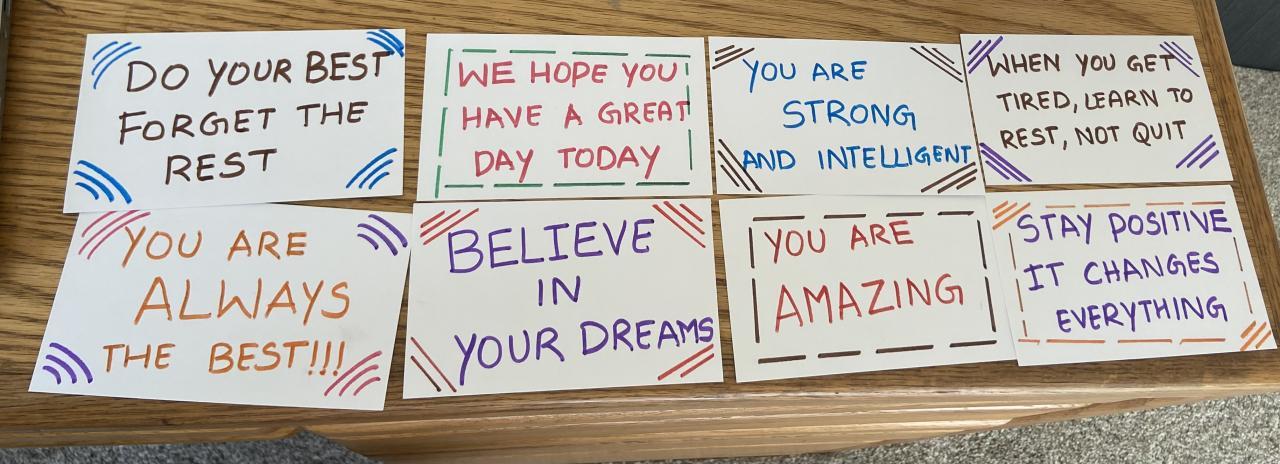 DO YOUR BEST
FORGET THE
REST
WE HOPE YOU
HAVE A GREAT
DAY TODAY
YOU ARE
STRONG
AND INTELLIGENT
WHEN YOU GET
TIRED, LEARN TO
REST, NOT QUIT
YOU ARE
ALWAYS
THE BEST!!!
BELIEVE
IN
YOUR DREAMS
YOU ARE
AMAZING
STAY POSITIVE
IT CHANGES
EVERYTHING